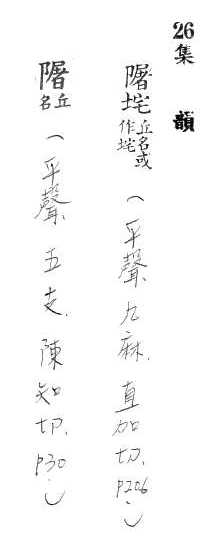 26集韻
䧯垞丘名或作垞(平聲、九麻、直加切、P206)
䧯丘名(平聲、五支、陳知切、P30)